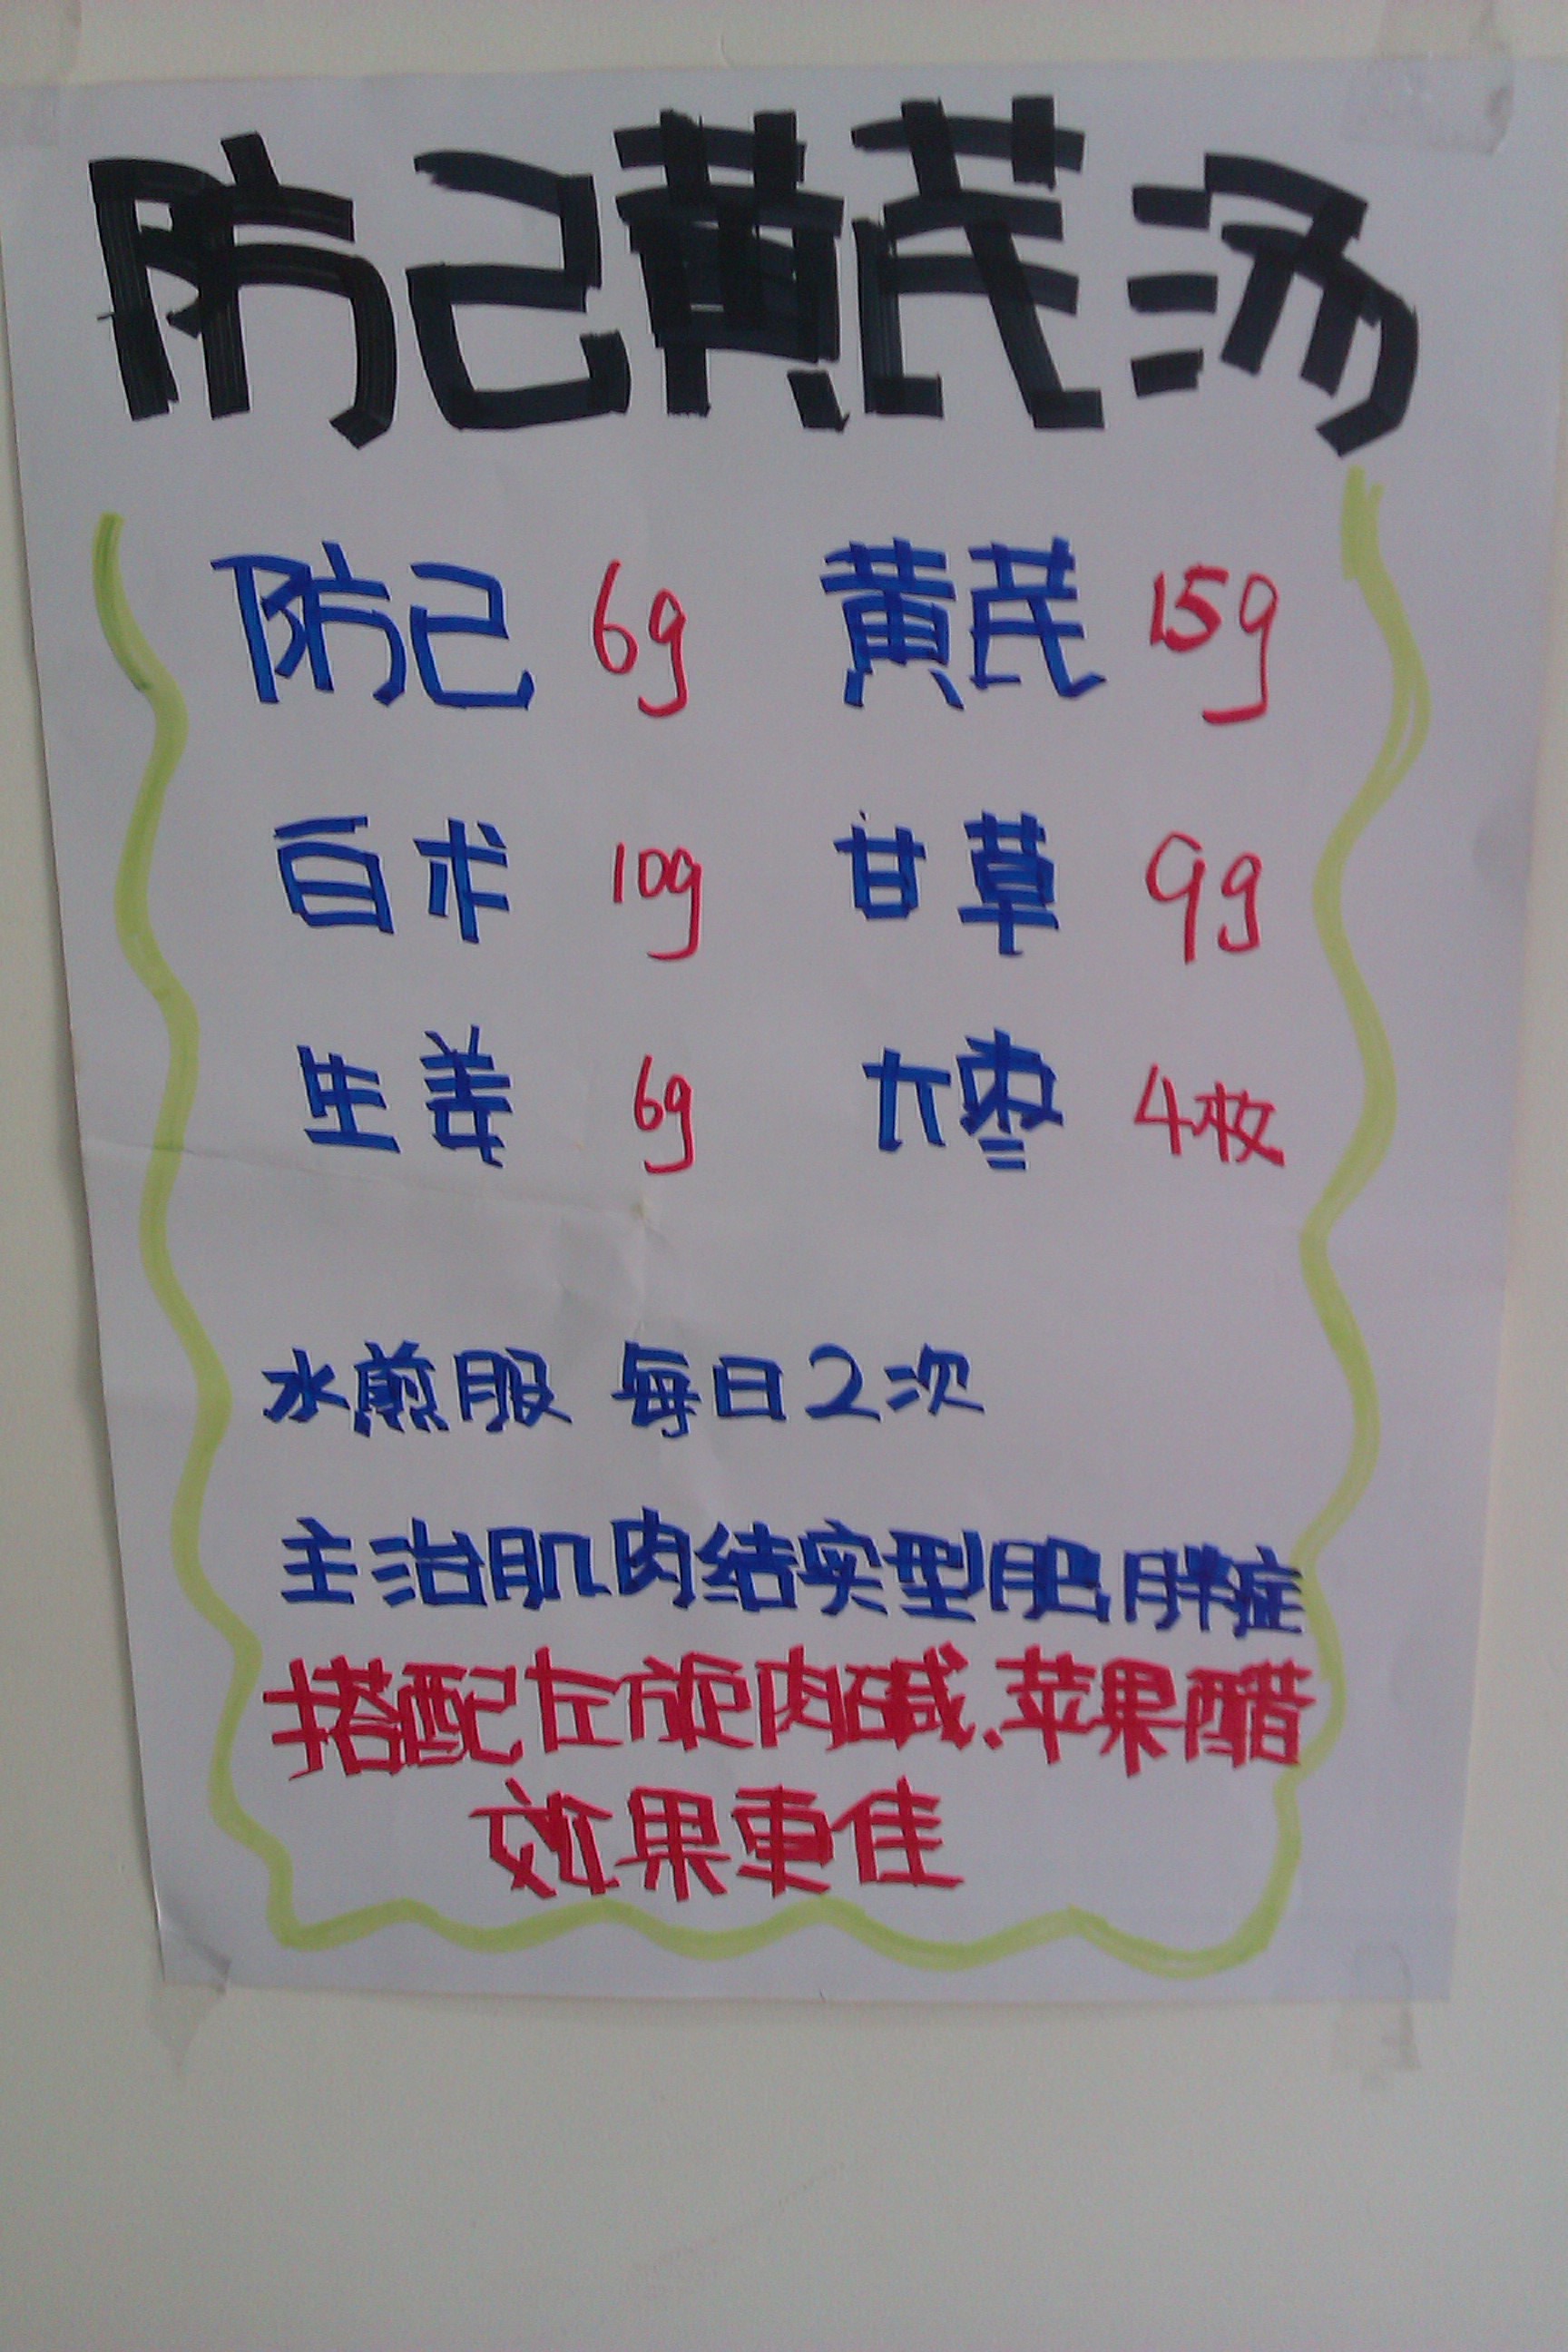 防己黄芪汤
防己 6g 黄芪 15g
白术 10g 甘草 9g
生姜 6g 大枣 4枚
水煎服 每日2次
主治肌肉结实型肥胖症
搭配左旋肉碱.苹果醋
效果更佳